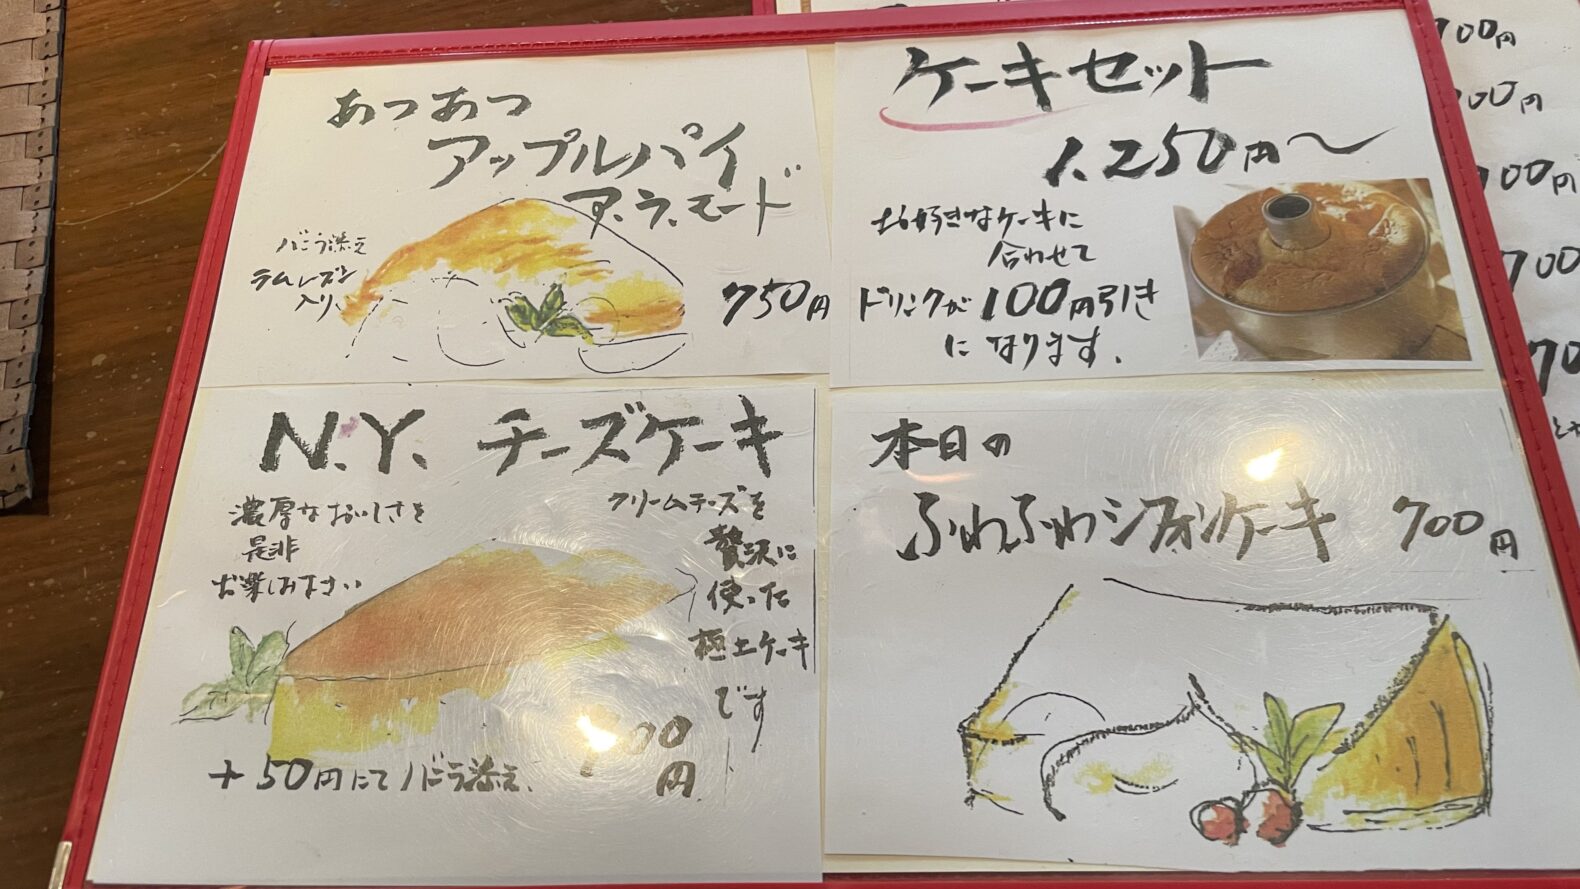 あつあつ
アップルパイ
ア.ラ.モード
バニラ添え
ラムレーズン
入り
750円
ケーキセット
1.250円〜
お好きなケーキに
合わせて
ドリンクが100円引き
になります.
N.Y.チーズケーキ
濃厚なおいしさを
是非
お楽しみ下さい
クリームチーズを
贅沢に
使った
極上ケーキ
です
00
円
+50円にてバニラ添え.
本日の
ふわふわシフォンケーキ 700円
700円
00円
700円
700
70